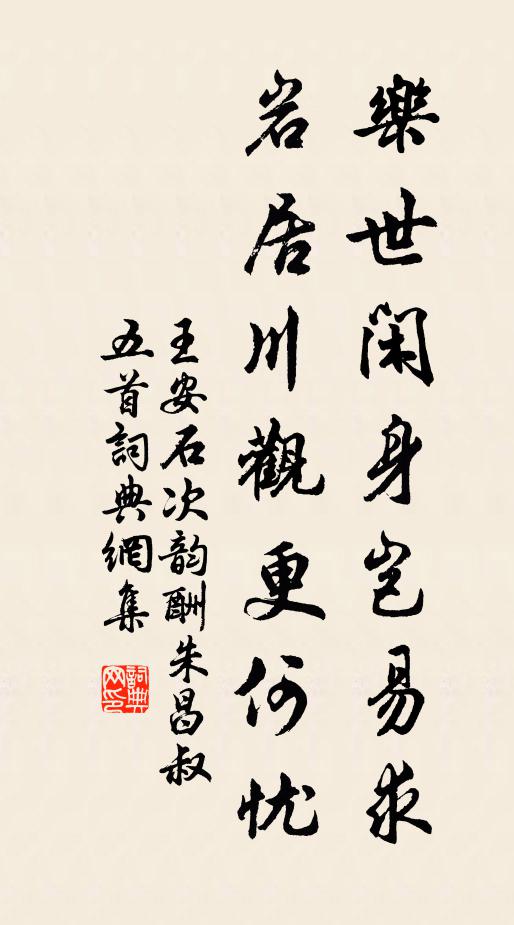 樂世閑身豈易求
岩居川觀更何忧
王安石次韵酬朱昌叔
五首詞典網集
詞典網印